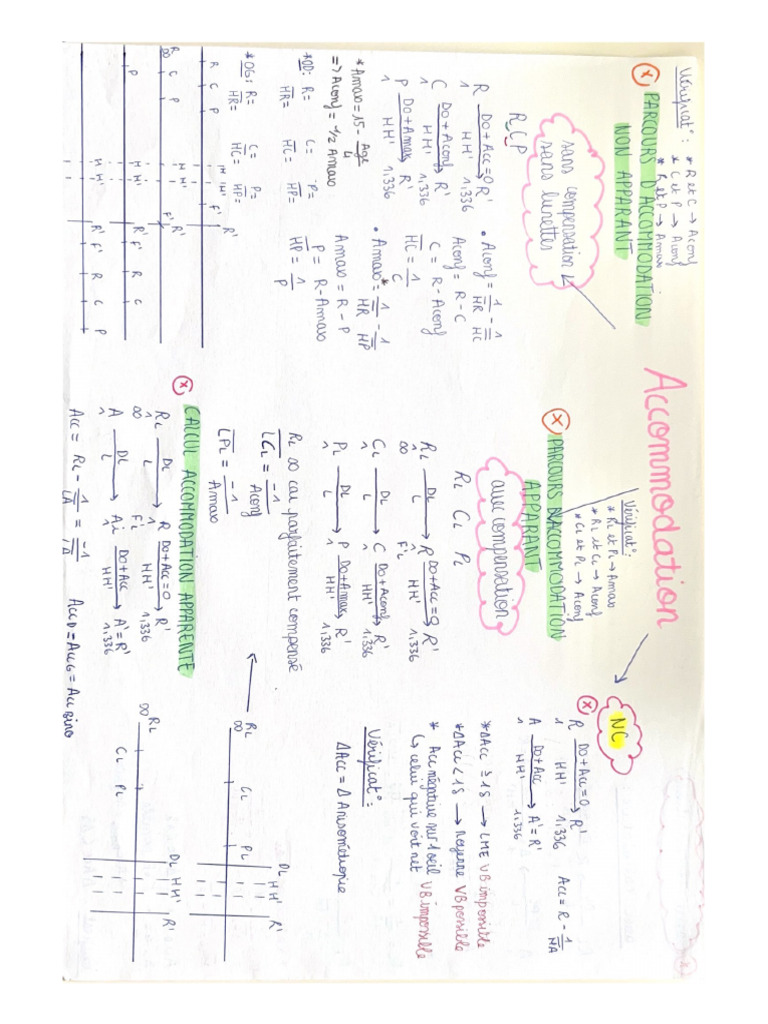 Accommodation
Vérificat° : * R et C → Aconf
* C et P → Aconf
* R et P → Amax
(x) PARCOURS D'ACCOMMODATION
NON APPARANT
sans compensation
sans lunettes
R C P
R Do+Acc=0 R'
1 HH' 1,336
C Do+Aconf R'
1 HH' 1,336
P Do+Amax R'
1 HH' 1,336
• Aconf = 1/HR - 1/HC
Aconf = R - C
C = R - Aconf
HC = 1/C
• Amax = 1/HR - 1/HP
Amax = R - P
P = R - Amax
HP = 1/P
* Amax = 15 - Age/4
=> Aconf = 1/2 Amax
* OD: R= C= P=
HR= HC= HP=
* OG: R= C= P=
HR= HC= HP=
R C P H H' F' R'
R C P H H' F' R'
∞
P H H' R' F' R C
H H' R' F' R C P
Vérificat°:
* RL et PL → Amax
* RL et CL → Aconf
* CL et PL → Aconf
(x) PARCOURS D'ACCOMMODATION
APPARANT
avec compensation
RL CL PL
RL DL R Do+Acc=0 R'
∞ 1 L F'L HH' 1,336
CL DL C Do+Aconf R'
1 L HH' 1,336
PL DL P Do+Amax R'
1 L HH' 1,336
RL ∞ car parfaitement compensé
LCL = -1/Aconf
LPL = -1/Amax
(x) CALCUL ACCOMMODATION APPARENTE
RL DL R Do+Acc=0 R'
∞ 1 L F'L 1 HH' 1,336
A DL Ai Do+Acc A'=R'
1 L 1 HH' 1,336
Acc = RL - 1/LA = -1/LA
AccD = AccG = Acc Bino
NC
(x) R Do+Acc=0 R'
1 HH' 1,336
A Do+Acc A'=R'
1 HH' 1,336
Acc = R - 1/HA
* ΔAcc ≥ 1δ → LME VB impossible
* ΔAcc < 1δ → Moyenne VB possible
* Acc négative sur 1 oeil VB impossible
↳ celui qui voit net
Vérificat°:
ΔAcc = Δ Anisométropie
RL CL PL DL H H' R'
∞
RL CL PL DL H H' R'
∞